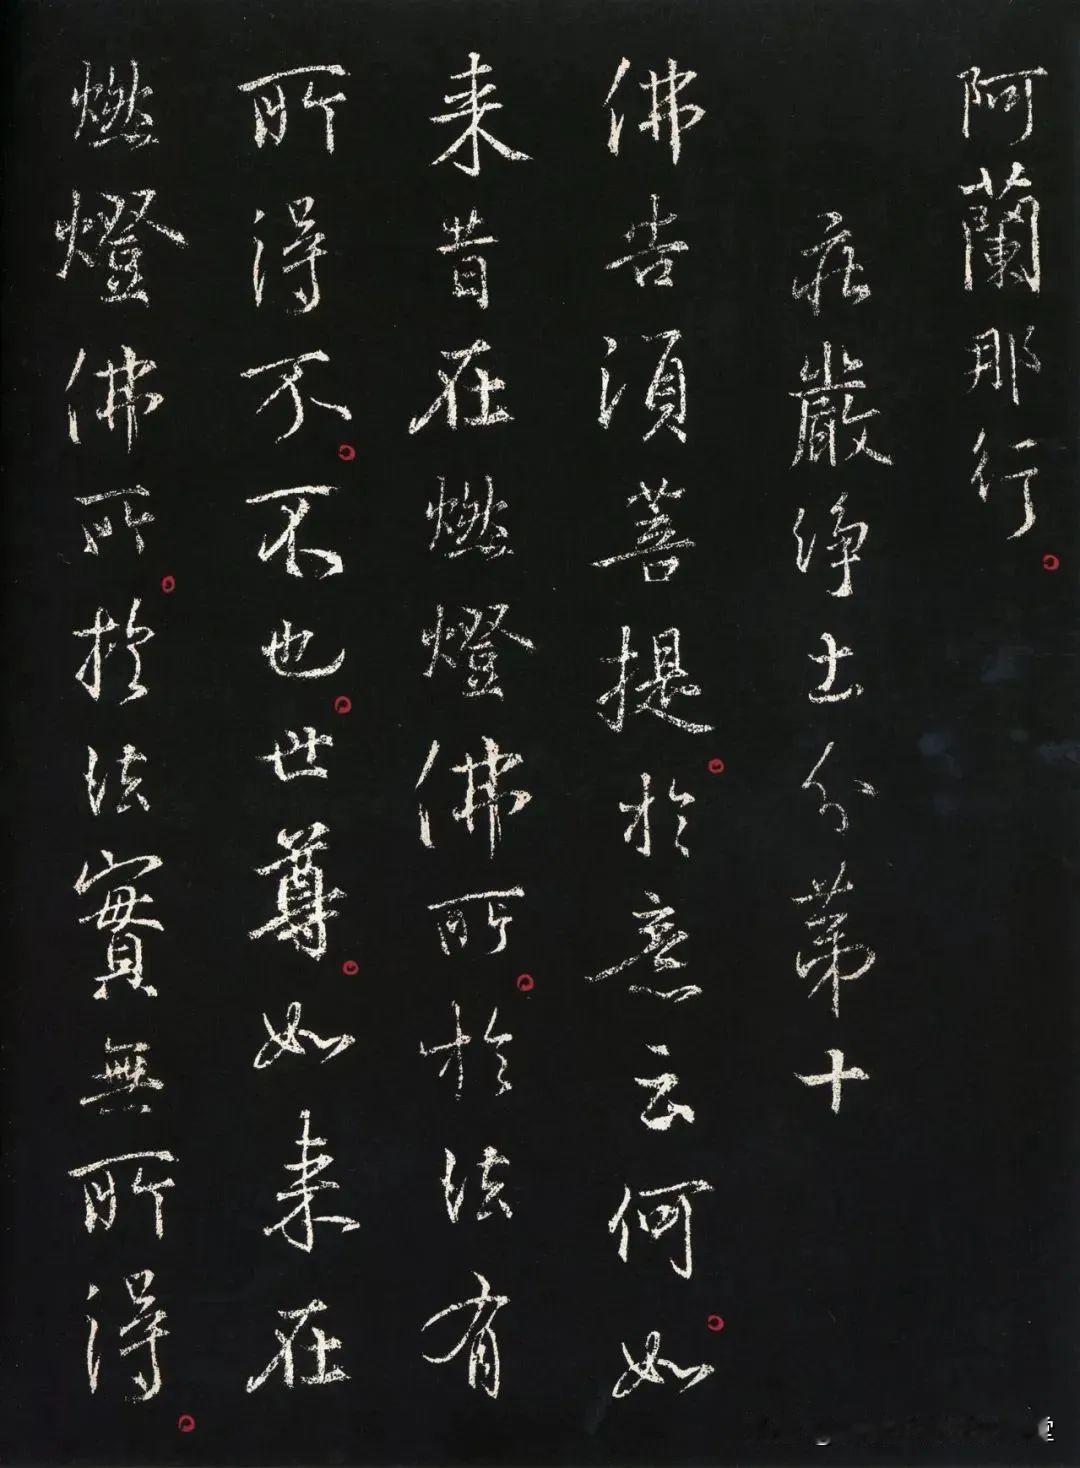 阿蘭那行
莊嚴淨土分第十
佛告須菩提於意云何如
来昔在燃燈佛所於法有
所得不不也世尊如来在
燃燈佛所於法實無所得